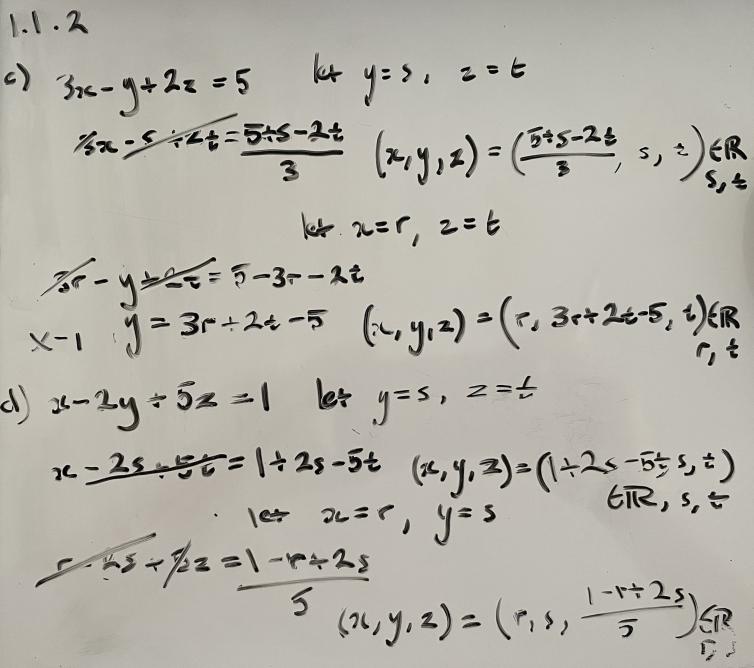 1.1.2
c) 3x - y + 2z = 5 let y = s, z = t
3x - s + 2t = (5 + s - 2t)/3 (x, y, z) = ((5 + s - 2t)/3, s, t) ∈ ℝ s, t
let x = r, z = t
3r - y + 2t = 5 - 3r - 2t
x-1 y = 3r + 2t - 5 (x, y, z) = (r, 3r + 2t - 5, t) ∈ ℝ r, t
d) x - 2y + 5z = 1 let y = s, z = t
x - 2s + 5t = 1 + 2s - 5t (x, y, z) = (1 + 2s - 5t, s, t)
∈ ℝ, s, t
let x = r, y = s
r - 2s + 5z = (1 - r + 2s)/5
(x, y, z) = (r, s, (1 - r + 2s)/5) ∈ ℝ r, s